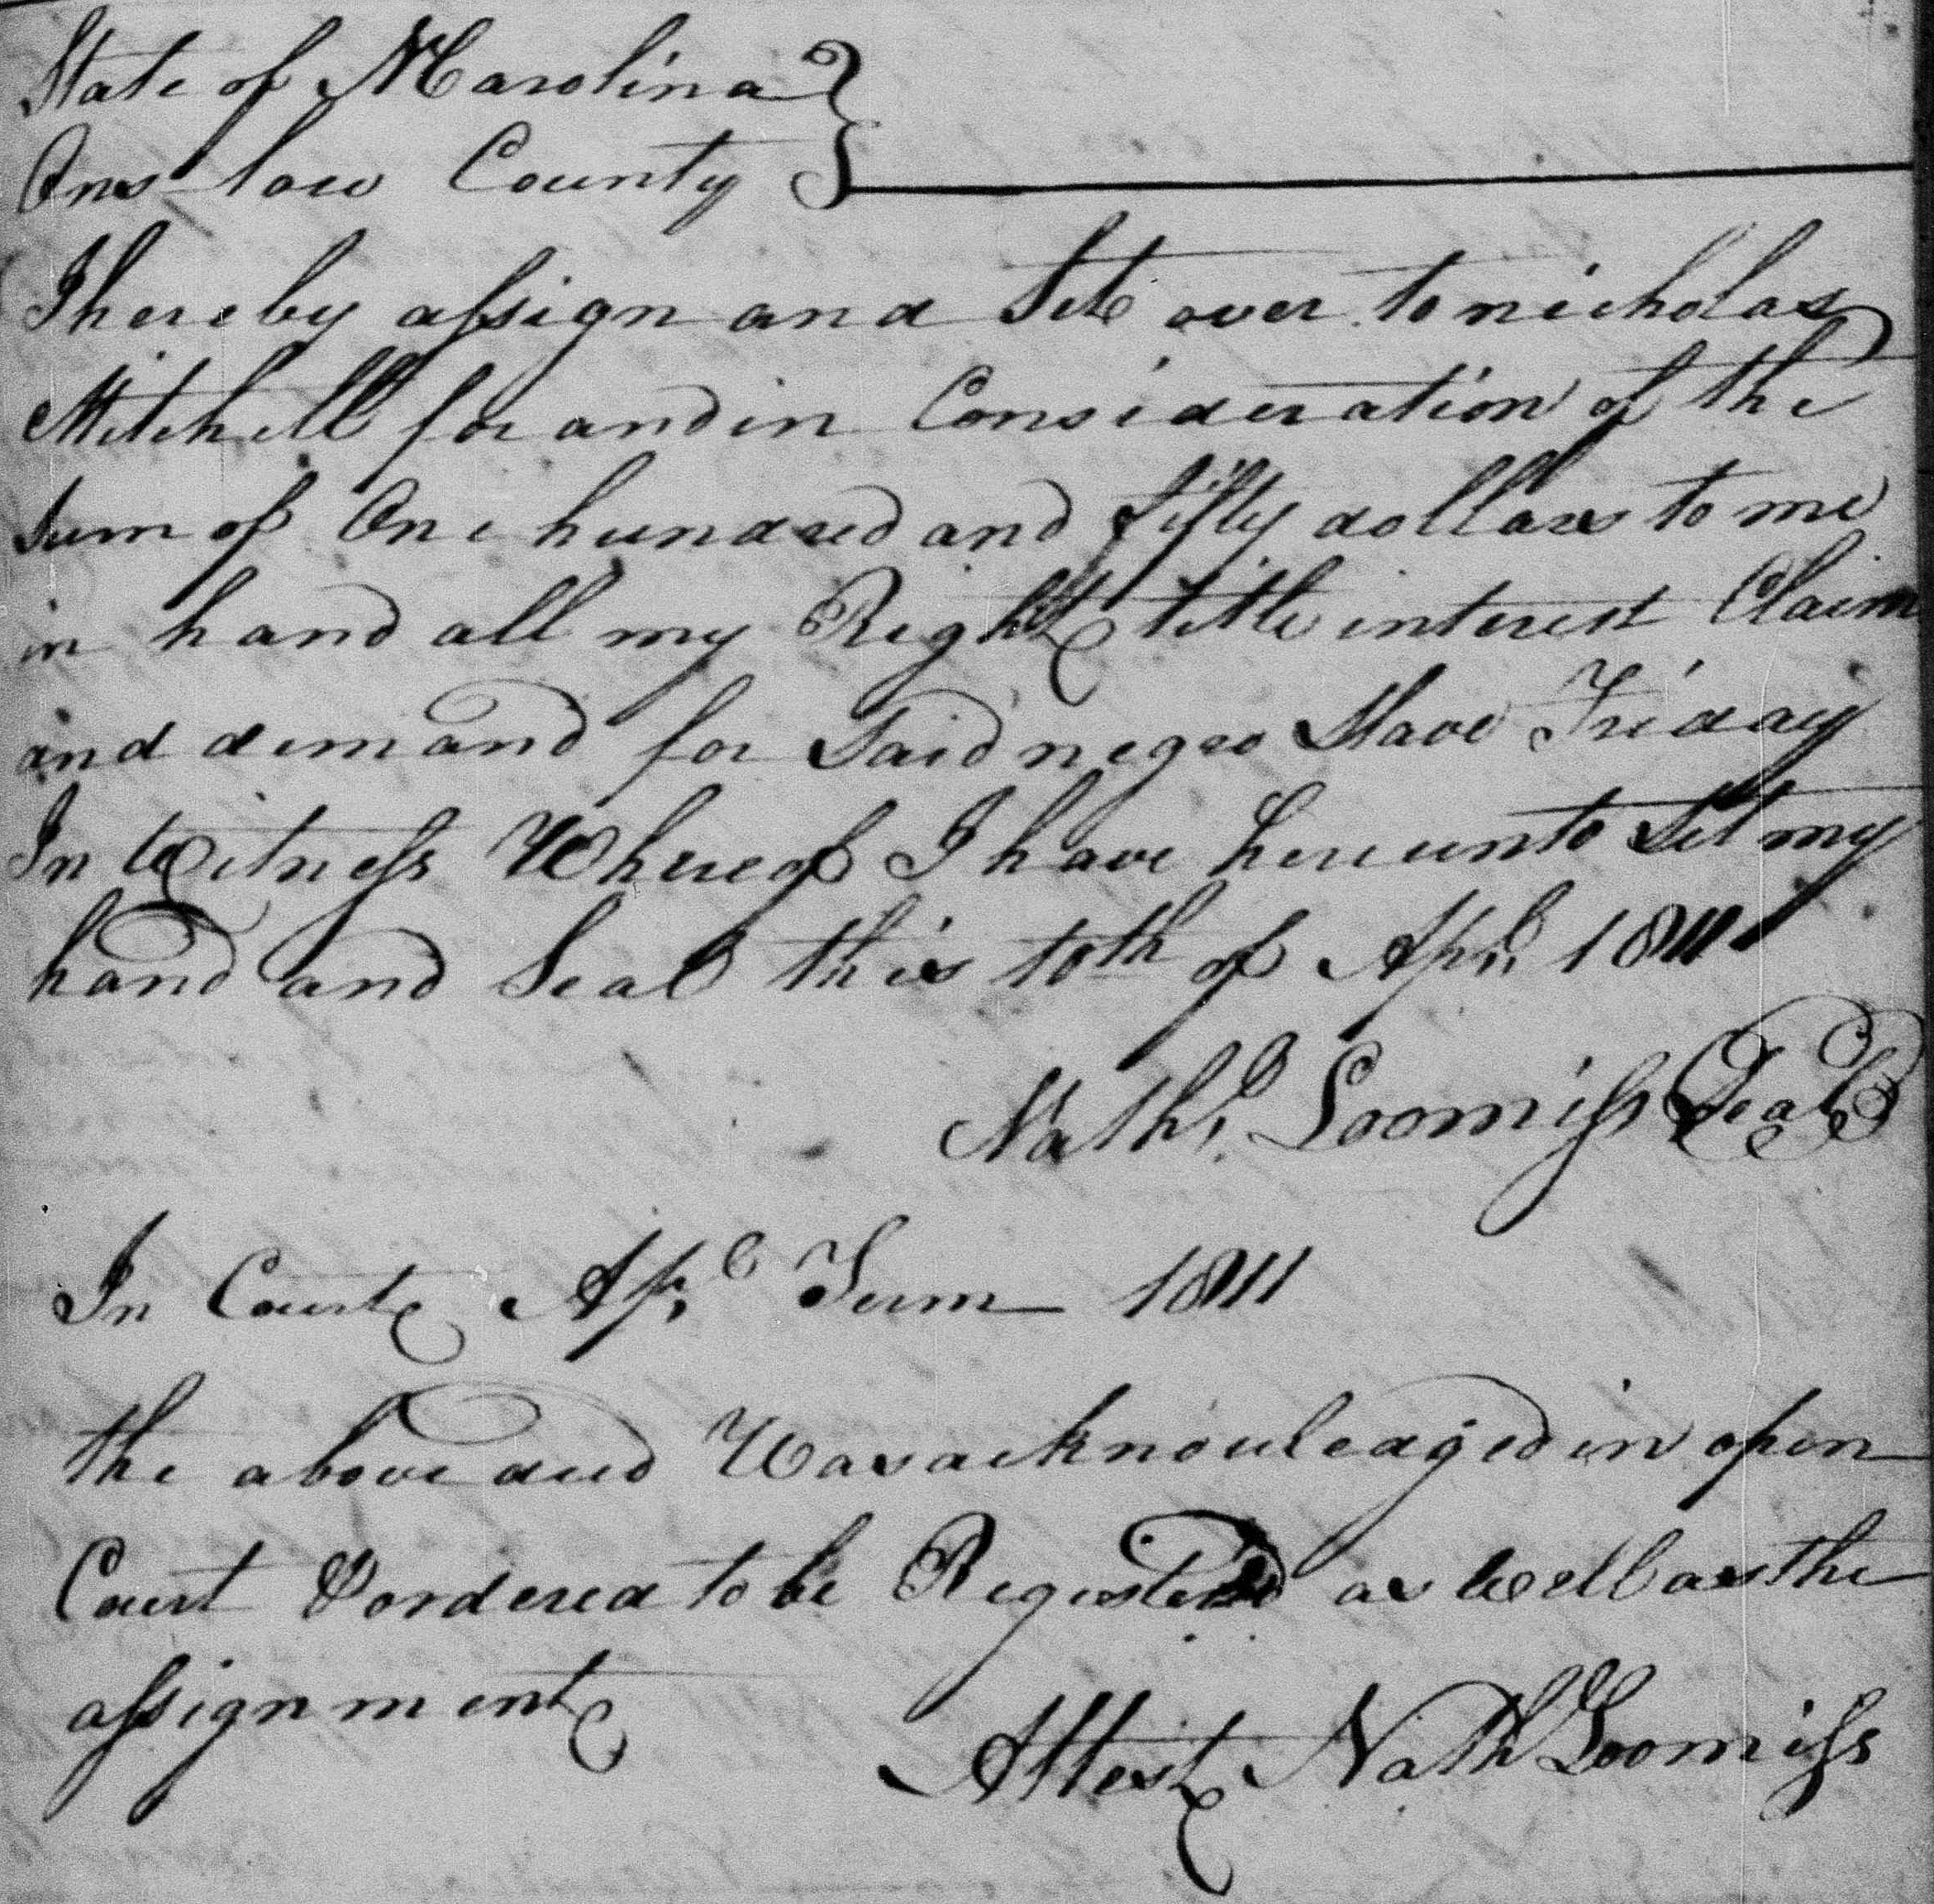 State of N Carolina }
Onslow County }
I hereby assign and Set over to nicholas
Mitchell for and in Consideration of the
Sum of One hundred and fifty dollars to me
in hand all my Right title interest Claim
and demand for Said negro Slave Friday
In Witness Whereof I have hereunto Set my
hand and Seal this 10th of Apl 1811
Nathl Loomiss Seal
In Court Apl Term 1811
the above deed Was acknowledged in open
Court & ordered to be Registered as well as the
assignment
Attest Nathl Loomiss